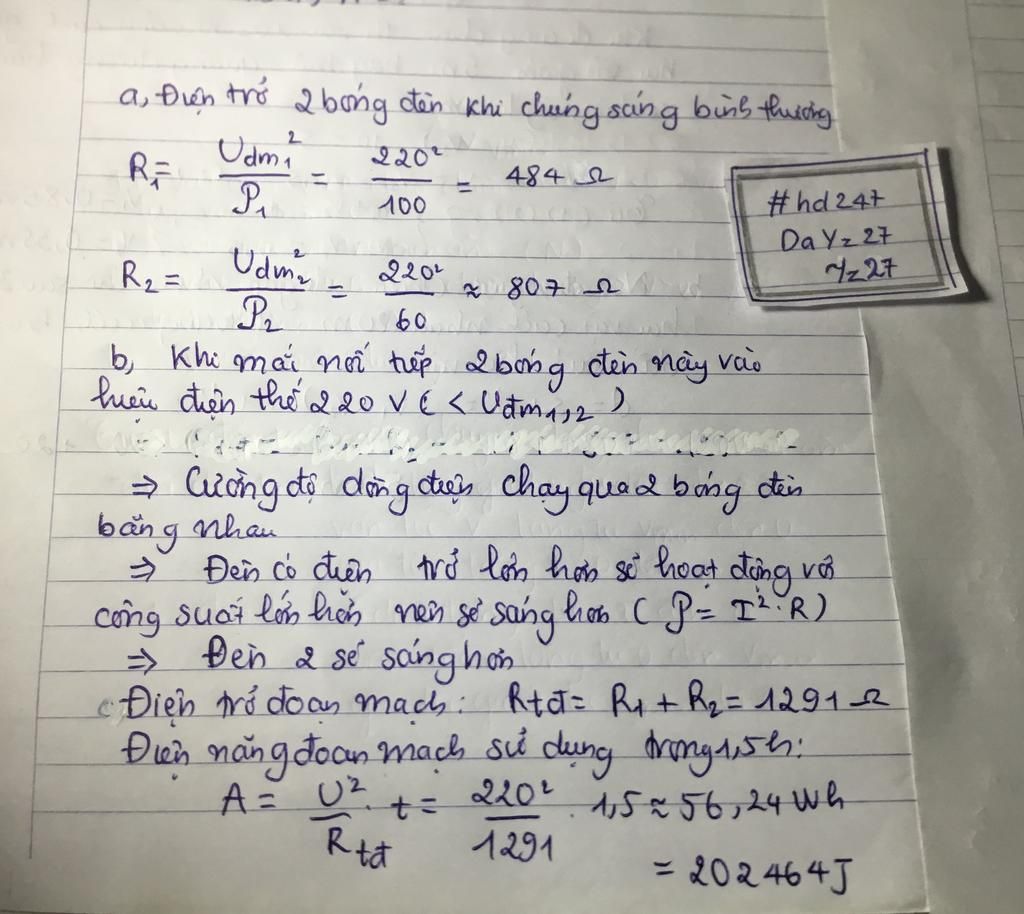 a, Điện trở 2 bóng đèn khi chúng sáng bình thường
R₁ = Udm₁² / P₁ = 220² / 100 = 484 Ω
#hd247
DaY=27
Y=27
R₂ = Udm₂² / P₂ = 220² / 60 ≈ 807 Ω
b, Khi mắc nối tiếp 2 bóng đèn này vào
hiệu điện thế 220 V ( < Uđm₁,₂ )
⇒ Cường độ dòng điện chạy qua 2 bóng đèn
bằng nhau
⇒ Đèn có điện trở lớn hơn sẽ hoạt động với
công suất lớn hơn nên sẽ sáng hơn ( P = I². R )
⇒ Đèn 2 sẽ sáng hơn
c Điện trở đoạn mạch: Rtđ = R₁ + R₂ = 1291 Ω
Điện năng đoạn mạch sử dụng trong 1,5h:
A = U² / Rtđ . t = 220² / 1291 . 1,5 ≈ 56,24 Wh
= 202464J